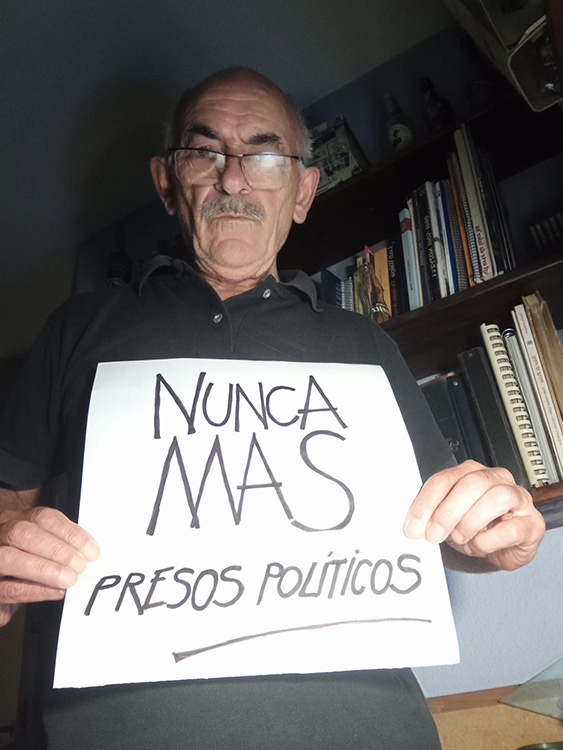 NUNCA
MAS
PRESOS POLÍTICOS